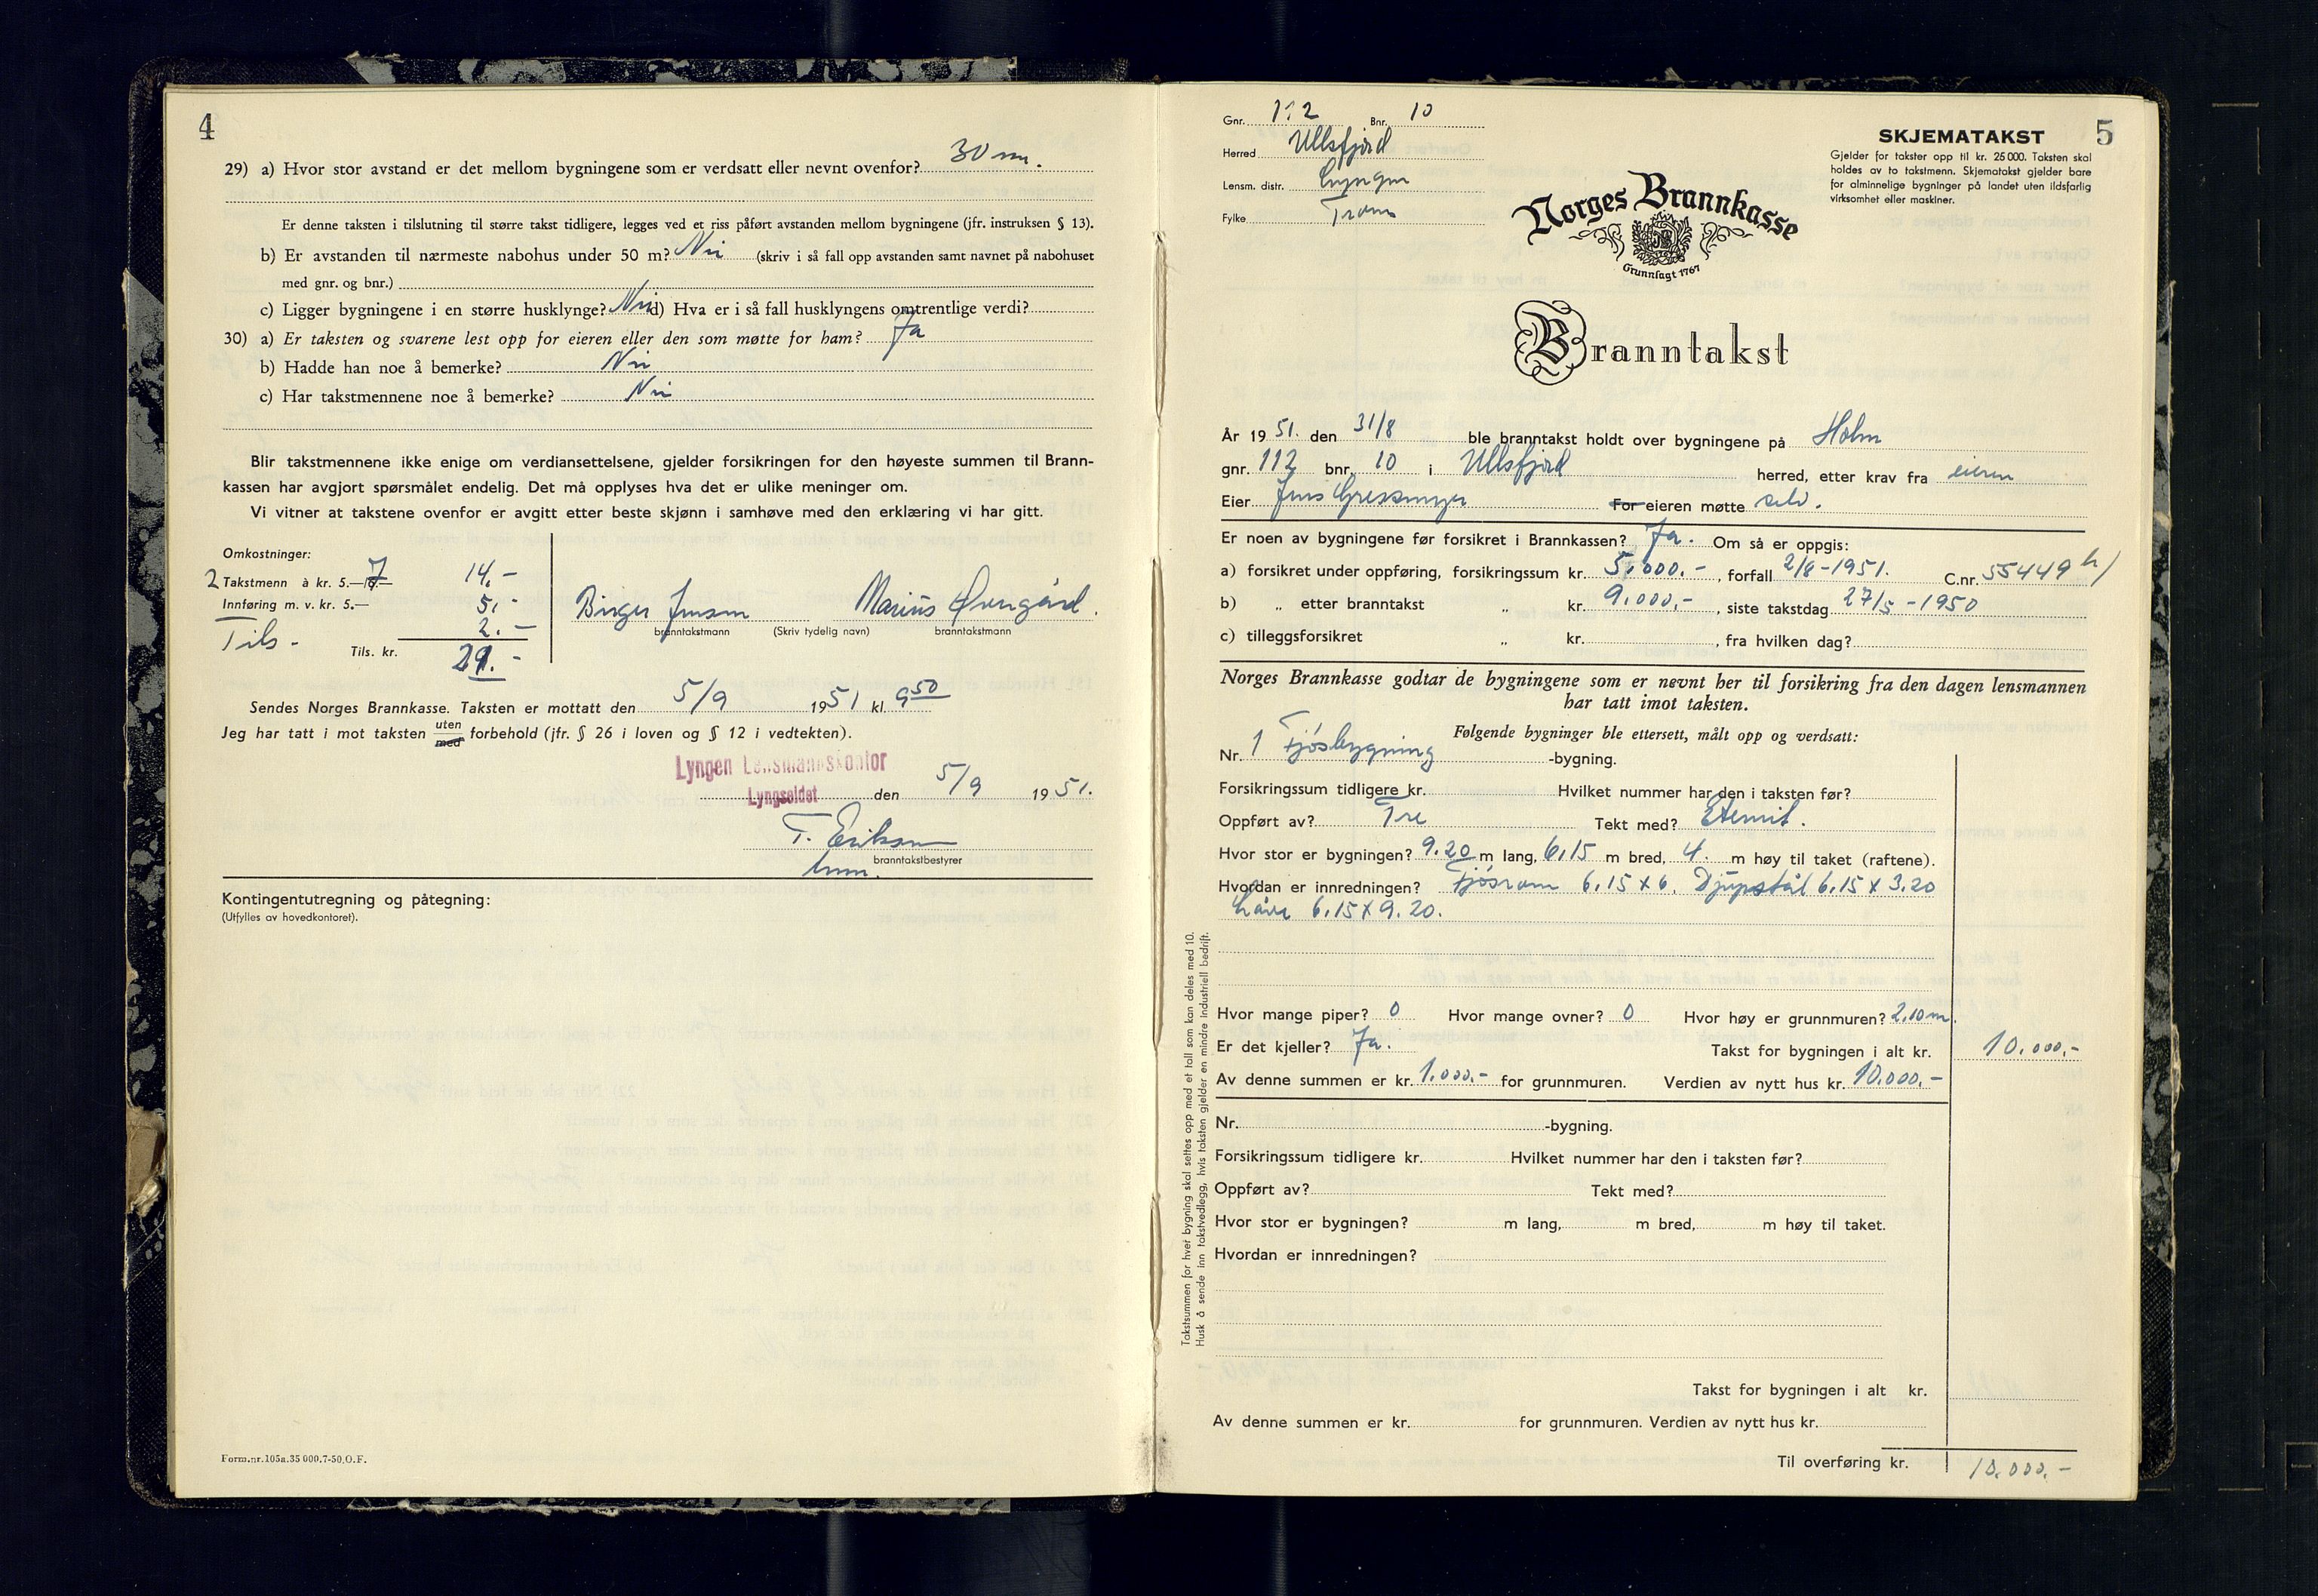 4
29) a) Hvor stor avstand er det mellom bygningene som er verdsatt eller nevnt ovenfor? 30 m.
Er denne taksten i tilslutning til større takst tidligere, legges ved et riss påført avstanden mellom bygningene (jfr. instruksen § 13).
b) Er avstanden til nærmeste nabohus under 50 m? Nei (skriv i så fall opp avstanden samt navnet på nabohuset
med gnr. og bnr.)
c) Ligger bygningene i en større husklynge? Nei d) Hva er i så fall husklyngens omtrentlige verdi?
30) a) Er taksten og svarene lest opp for eieren eller den som møtte for ham? Ja
b) Hadde han noe å bemerke? Nei
c) Har takstmennene noe å bemerke? Nei
Blir takstmennene ikke enige om verdiansettelsene, gjelder forsikringen for den høyeste summen til Brann-
kassen har avgjort spørsmålet endelig. Det må opplyses hva det er ulike meninger om.
Vi vitner at takstene ovenfor er avgitt etter beste skjønn i samhøve med den erklæring vi har gitt.
Omkostninger:
2 Takstmenn à kr. 5.— 7 14.-
Innføring m. v. kr. 5.— 5.-
Tils - 2.-
Tils. kr. 21.-
Birger Jensen Marius Øvergård.
branntakstmann (Skriv tydelig navn) branntakstmann
Sendes Norges Brannkasse. Taksten er mottatt den 5/9 1951 kl. 9 50
Jeg har tatt i mot taksten uten med forbehold (jfr. § 26 i loven og § 12 i vedtekten).
Lyngen Lensmannskontor
Lyngseidet den 5/9 1951.
T. Eriksen
branntakstbestyrer
lensm.
Kontingentutregning og påtegning:
(Utfylles av hovedkontoret).
Form.nr.105a.35 000.7-50.O.F.
5
Gnr. 112 Bnr. 10
Herred Ullsfjord
Lensm. distr. Lyngen
Fylke Troms
SKJEMATAKST
Gjelder for takster opp til kr. 25 000. Taksten skal
holdes av to takstmenn. Skjematakst gjelder bare
for alminnelige bygninger på landet uten ildsfarlig
virksomhet eller maskiner.
Norges Brannkasse
Grunnlagt 1767
Branntakst
År 1951. den 31/8 ble branntakst holdt over bygningene på Holm
gnr. 112 bnr. 10 i Ullsfjord herred, etter krav fra eieren
Eier Jens For eieren møtte selv.
Er noen av bygningene før forsikret i Brannkassen? Ja. Om så er oppgis:
a) forsikret under oppføring, forsikringssum kr. 5.000.- , forfall 2/8-1951. C.nr. 55449
b) „ etter branntakst „ kr. 9.000.- , siste takstdag 27/5-1950
c) tilleggsforsikret „ kr. , fra hvilken dag?
Norges Brannkasse godtar de bygningene som er nevnt her til forsikring fra den dagen lensmannen
har tatt imot taksten.
Følgende bygninger ble ettersett, målt opp og verdsatt:
Nr. 1 Fjøsbygning -bygning.
Forsikringssum tidligere kr. Hvilket nummer har den i taksten før?
Oppført av? Tre Tekt med? Eternit.
Hvor stor er bygningen? 9.20 m lang, 6,15 m bred, 4. m høy til taket (raftene).
Hvordan er innredningen? Fjøsrom 6.15 x 6. Djupstål 6,15 x 3.20
Låve 6,15 x 9.20.
Hvor mange piper? 0 Hvor mange ovner? 0 Hvor høy er grunnmuren? 2,10 m.
Er det kjeller? Ja. Takst for bygningen i alt kr. 10.000,-
Av denne summen er kr. 1.000.- for grunnmuren. Verdien av nytt hus kr. 10.000.-
Nr. -bygning.
Forsikringssum tidligere kr. Hvilket nummer har den i taksten før?
Oppført av? Tekt med?
Hvor stor er bygningen? m lang, m bred, m høy til taket.
Hvordan er innredningen?
Takst for bygningen i alt kr.
Av denne summen er kr. for grunnmuren. Verdien av nytt hus kr.
Til overføring kr. 10.000.-
Takstsummen for hver bygning skal settes opp med et tall som kan deles med 10.
Husk å sende inn takstvedlegg, hvis taksten gjelder en mindre industriell bedrift.